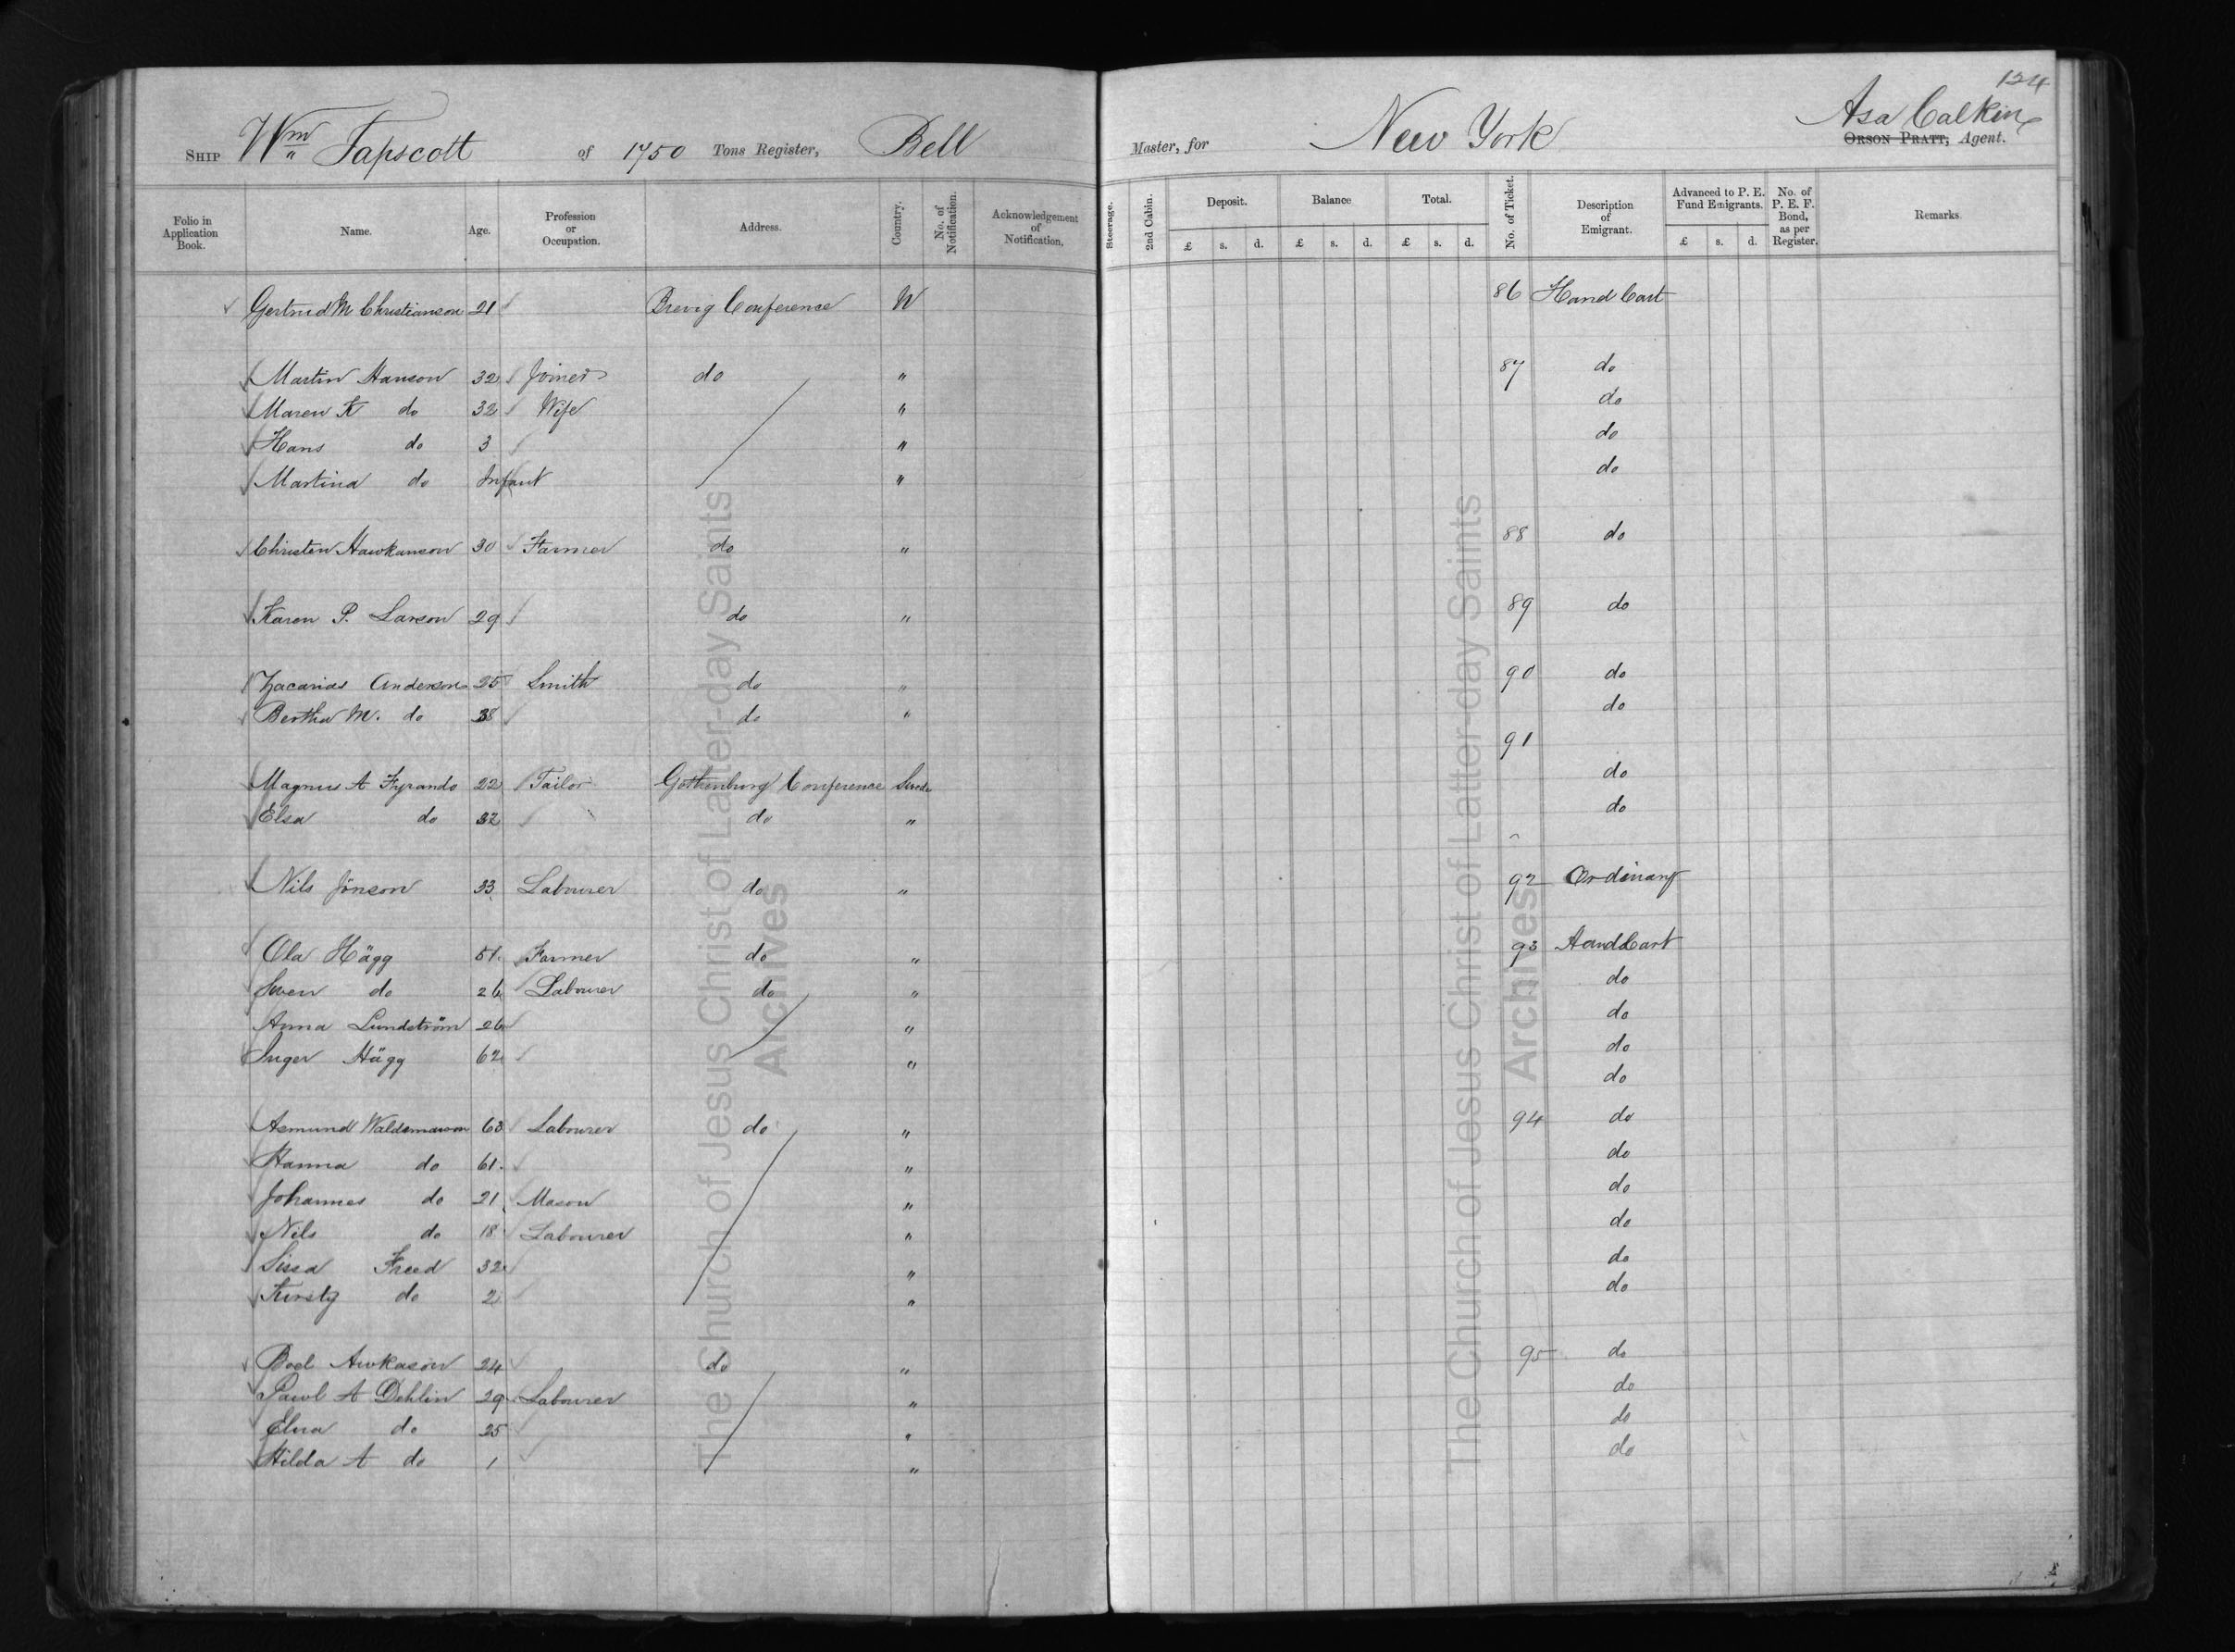 124
Ship Wm Tapscott of 1750 Tons Register, Bell Master, for New York Asa Calkin
Orson Pratt, Agent.
Folio in Application Book. Name. Age. Profession or Occupation. Address. Country. No. of Notification. Acknowledgement of Notification. Steerage. 2nd Cabin. Deposit. Balance Total. No. of Ticket. Description of Emigrant. Advanced to P. E. Fund Emigrants. No. of P. E. F. Bond, as per Register. Remarks.
£ s. d. £ s. d. £ s. d. £ s. d.
Gertrud M Christianson 21 Brevig Conference N 86 Hand Cart
Martin Hanson 32 Joiner do " 87 do
Maren K do 32 Wife " do
Hans do 3 " do
Martina do Infant " do
Christen Hawkanson 30 Farmer do " 88 do
Karen P. Larson 29 do " 89 do
Zacarias Anderson 25 Smith do " 90 do
Bertha M. do 38 do " do
91
Magnus A Fyrando 22 Tailor Gothenburg Conference do
Elsa do 32 do " do
Nils Jönson 33 Labourer do " 92 Ordinary
Ola Hägg 51 Farmer do " 93 Hand Cart
Swen do 26 Labourer do " do
Anna Lundström 26 " do
Inger Hägg 62 " do
do
Asmund Waldemarson 63 Labourer do " 94 do
Hanna do 61 " do
Johannes do 21 Mason " do
Nils do 18 Labourer " do
Sissa Freed 32 " do
Kirsty do 2 " do
Boel Awkason 24 do " 95 do
Pawl A Dehlin 29 Labourer " do
Elna do 25 " do
Hilda A do 1 " do
The Church of Jesus Christ of Latter-day Saints
Archives
The Church of Jesus Christ of Latter-day Saints
Archives